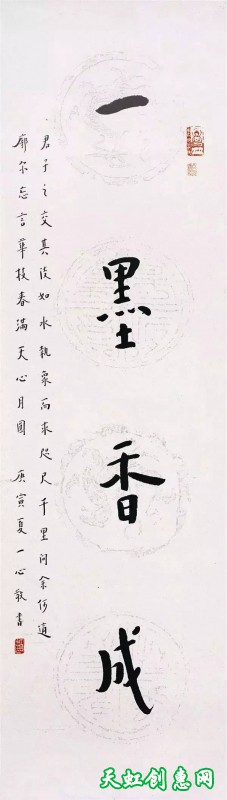 一墨香成
君子之交其淡如水執象而求咫尺千里问余何適
廓尔忘言華枝春滿天心月圓 庚寅夏一心敬書
天虹创惠网